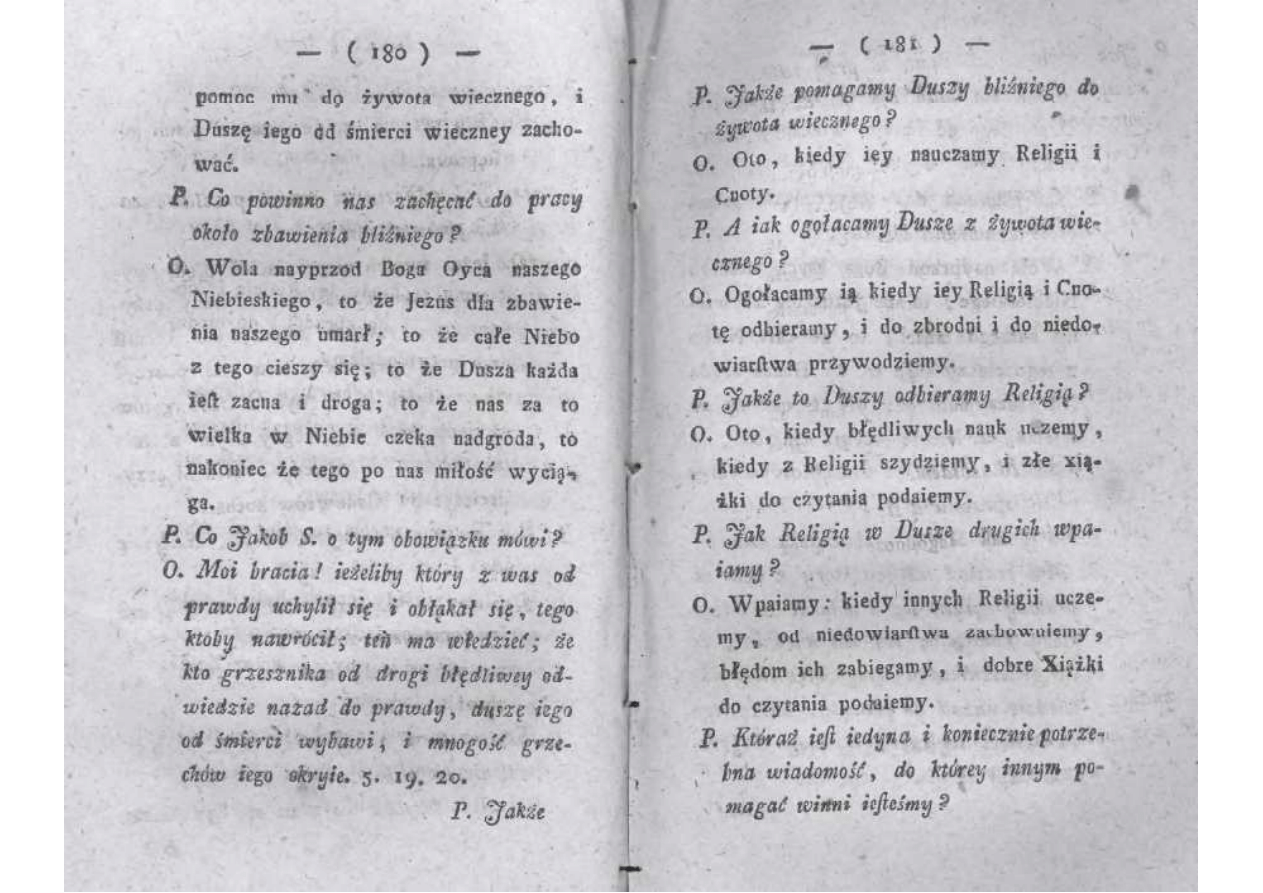 — ( 180 ) —
pomoc mu do żywota wiecznego, i
Duszę iego od śmierci wieczney zacho-
wać.
P. Co powinno nas zachęcać do pracy
około zbawienia bliźniego?
O. Wola nayprzod Boga Oyca naszego
Niebieskiego, to że Jezus dla zbawie-
nia naszego umarł; to że całe Niebo
z tego cieszy się; to że Dusza każda
ieſt zacna i droga; to że nas za to
wielka w Niebie czeka nadgroda, to
nakoniec że tego po nas miłość wycią-
ga.
P. Co Jakob S. o tym obowiązku mówi?
O. Moi bracia! ieżeliby który z was od
prawdy uchylił się i obłąkał się, tego
ktoby nawrócił; ten ma wiedzieć; że
kto grzesznika od drogi błędliwey od-
wiedzie nazad do prawdy, duszę iego
od śmierci wybawi, i mnogość grze-
chów iego okryie. 5. 19. 20.
P. Jakże
— ( 181 ) —
P. Jakże pomagamy Duszy bliźniego do
żywota wiecznego?
O. Oto, kiedy iey nauczamy Religii i
Cnoty.
P. A iak ogołacamy Dusze z żywota wie-
cznego?
O. Ogołacamy ią kiedy iey Religią i Cno-
tę odbieramy, i do zbrodni i do niedo-
wiarſtwa przywodziemy.
P. Jakże to Duszy odbieramy Religią?
O. Oto, kiedy błędliwych nauk uczemy,
kiedy z Religii szydziemy, i złe xią-
żki do czytania podaiemy.
P. Jak Religią w Dusze drugich wpa-
iamy?
O. Wpaiamy: kiedy innych Religii ucze-
my, od niedowiarſtwa zachowuiemy,
błędom ich zabiegamy, i dobre Xiążki
do czytania podaiemy.
P. Któraż ieſt iedyna i koniecznie potrze-
bna wiadomość, do którey innym po-
magać winni ieſteśmy?